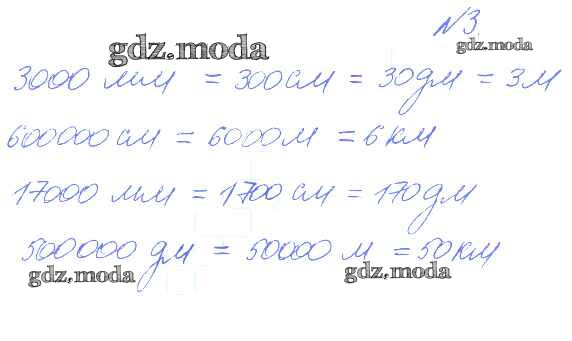 №3
gdz.moda
gdz.moda
3000 мм = 300 см = 30 дм = 3 м
600000 см = 6000 м = 6 км
17000 мм = 1700 см = 170 дм
500000 дм = 50000 м = 50 км
gdz.moda
gdz.moda